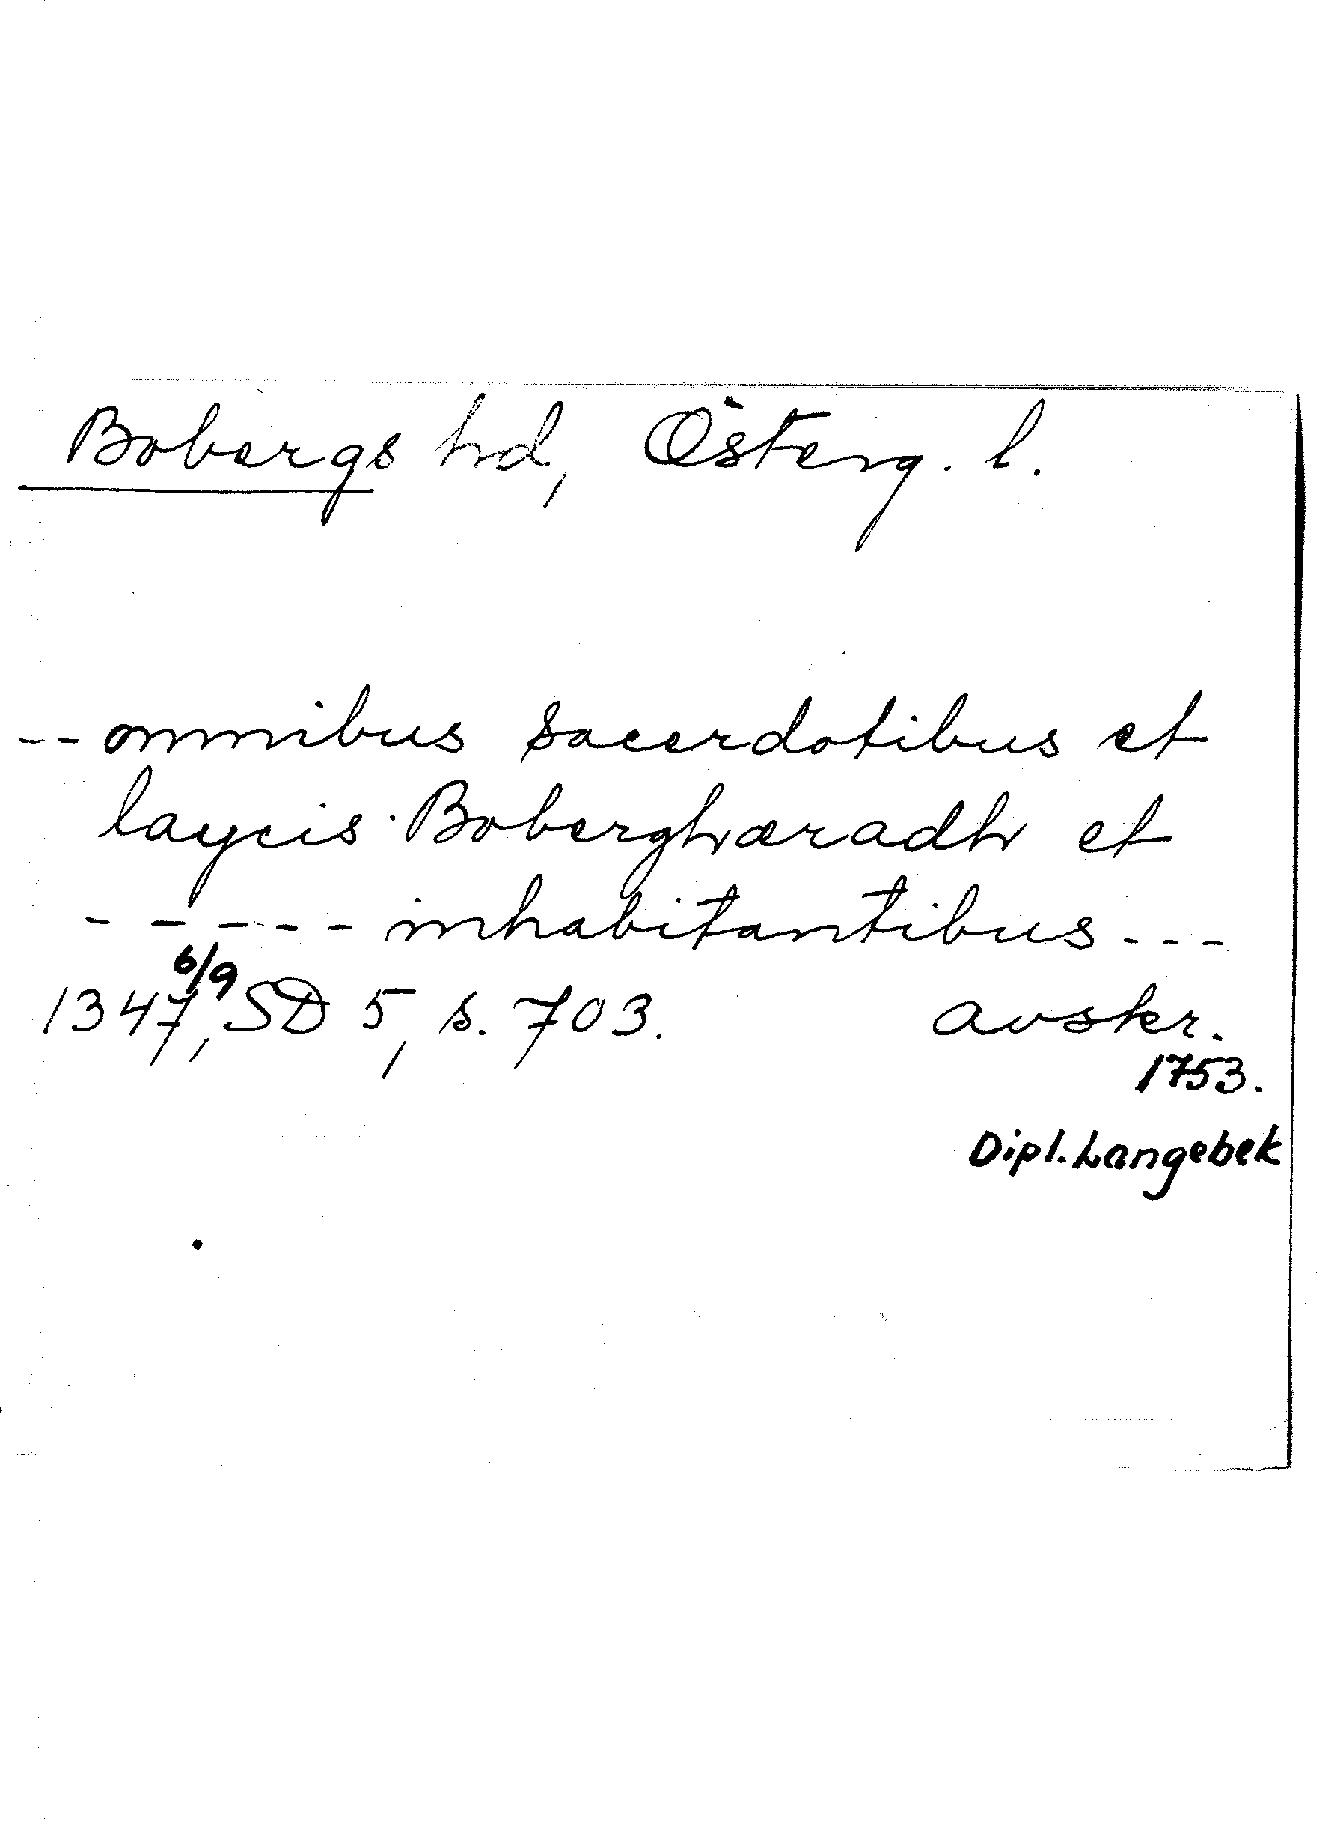 Bobergs hd, Österg. l.
-- omnibus sacerdotibus et
laycis Boberghæradh et
----- inhabitantibus ---
1347 6/9, SD 5, s. 703. avskr.
1753.
Dipl. Langebek